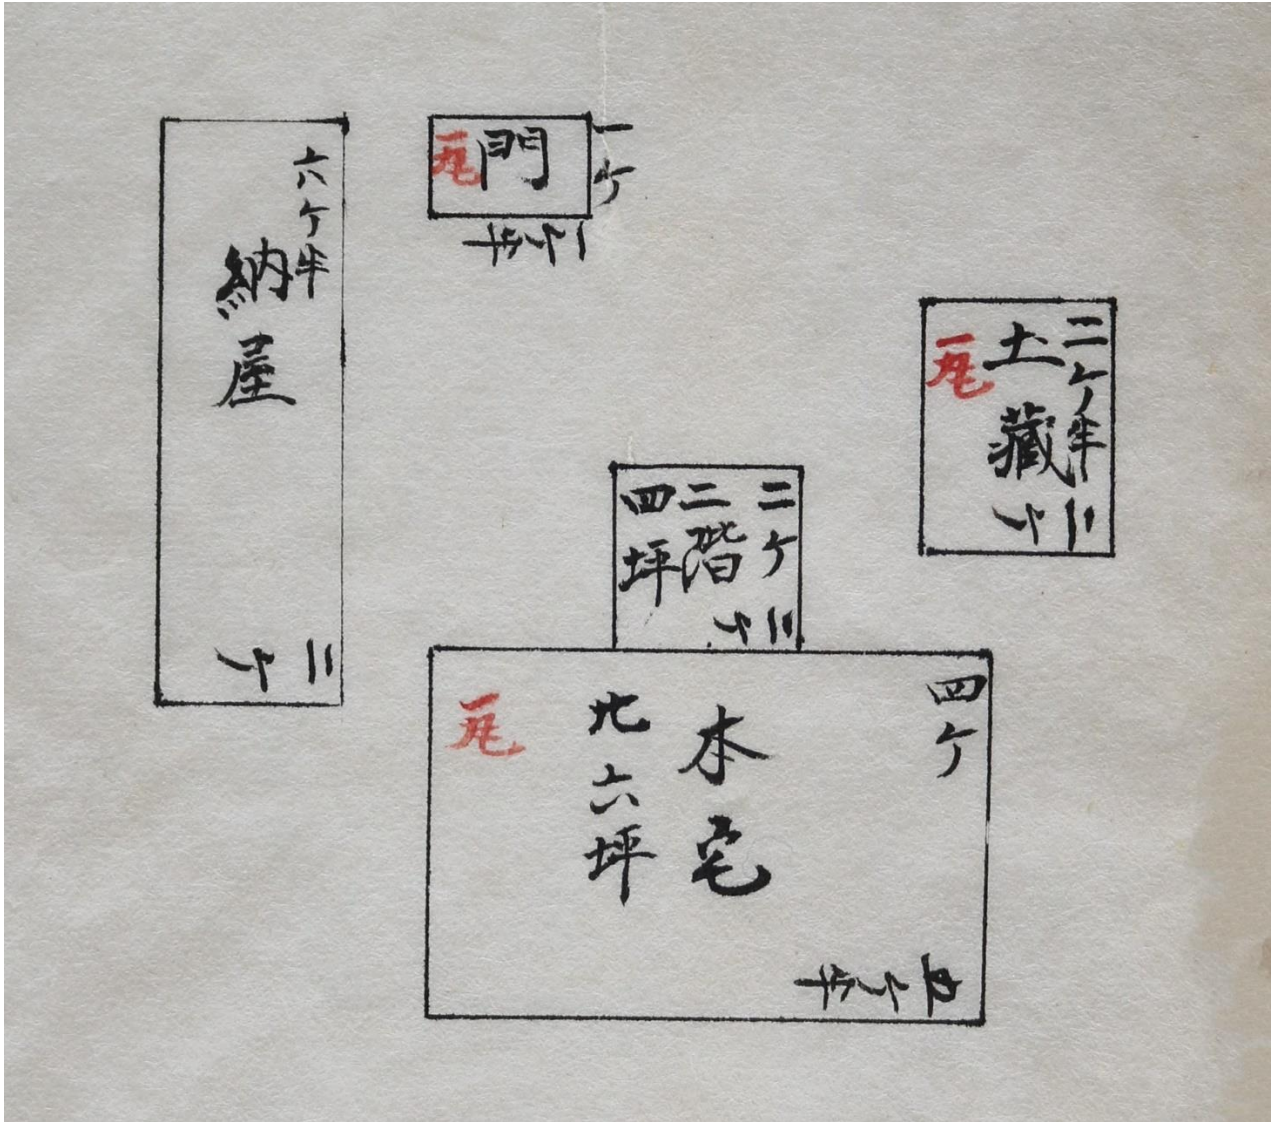 六ケ半
納屋
二ケ
一ケ
門
瓦
二ケ半
二ケ半
土藏
瓦
二ケ
二ケ
二階
四坪
二ケ
四ケ
本宅
北六坪
瓦
五ケ半